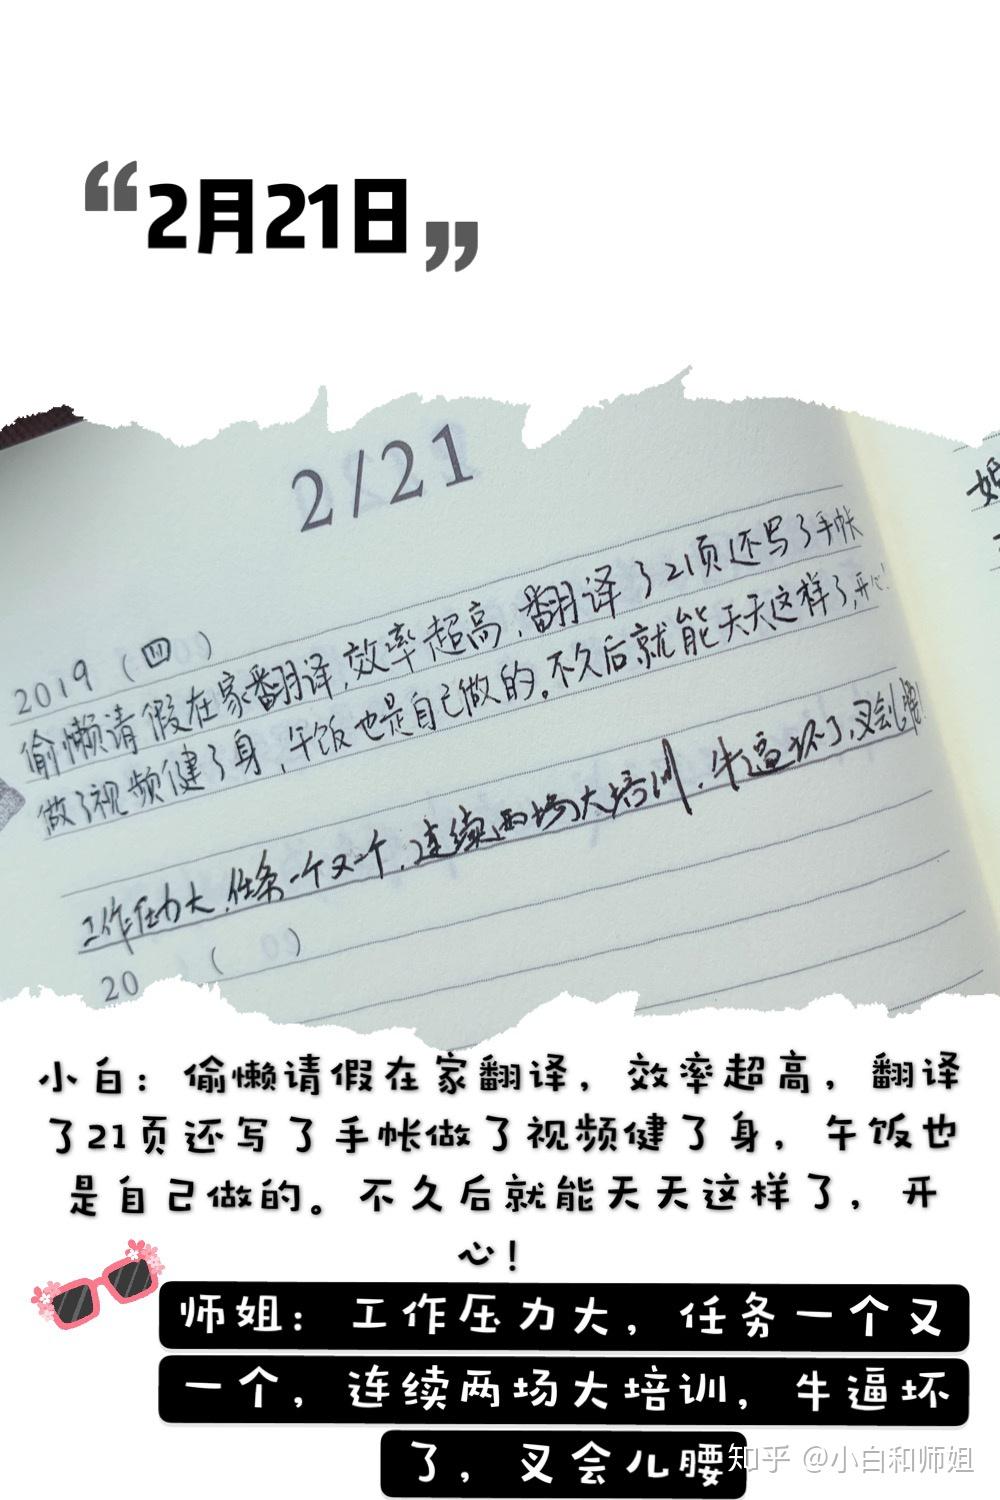 “2月21日”
2/21
2019（四）
偷懒请假在家翻译,效率超高,翻译了21页还写了手帐
做了视频健了身,午饭也是自己做的。不久后就能天天这样了,开心!
工作压力大,任务一个又一个,连续两场大培训,牛逼坏了,叉会儿腰!
20 （ ）
小白：偷懒请假在家翻译，效率超高，翻译
了21页还写了手帐做了视频健了身，午饭也
是自己做的。不久后就能天天这样了，开
心！
师姐：工作压力大，任务一个又
一个，连续两场大培训，牛逼坏
了，叉会儿腰
知乎 @小白和师姐